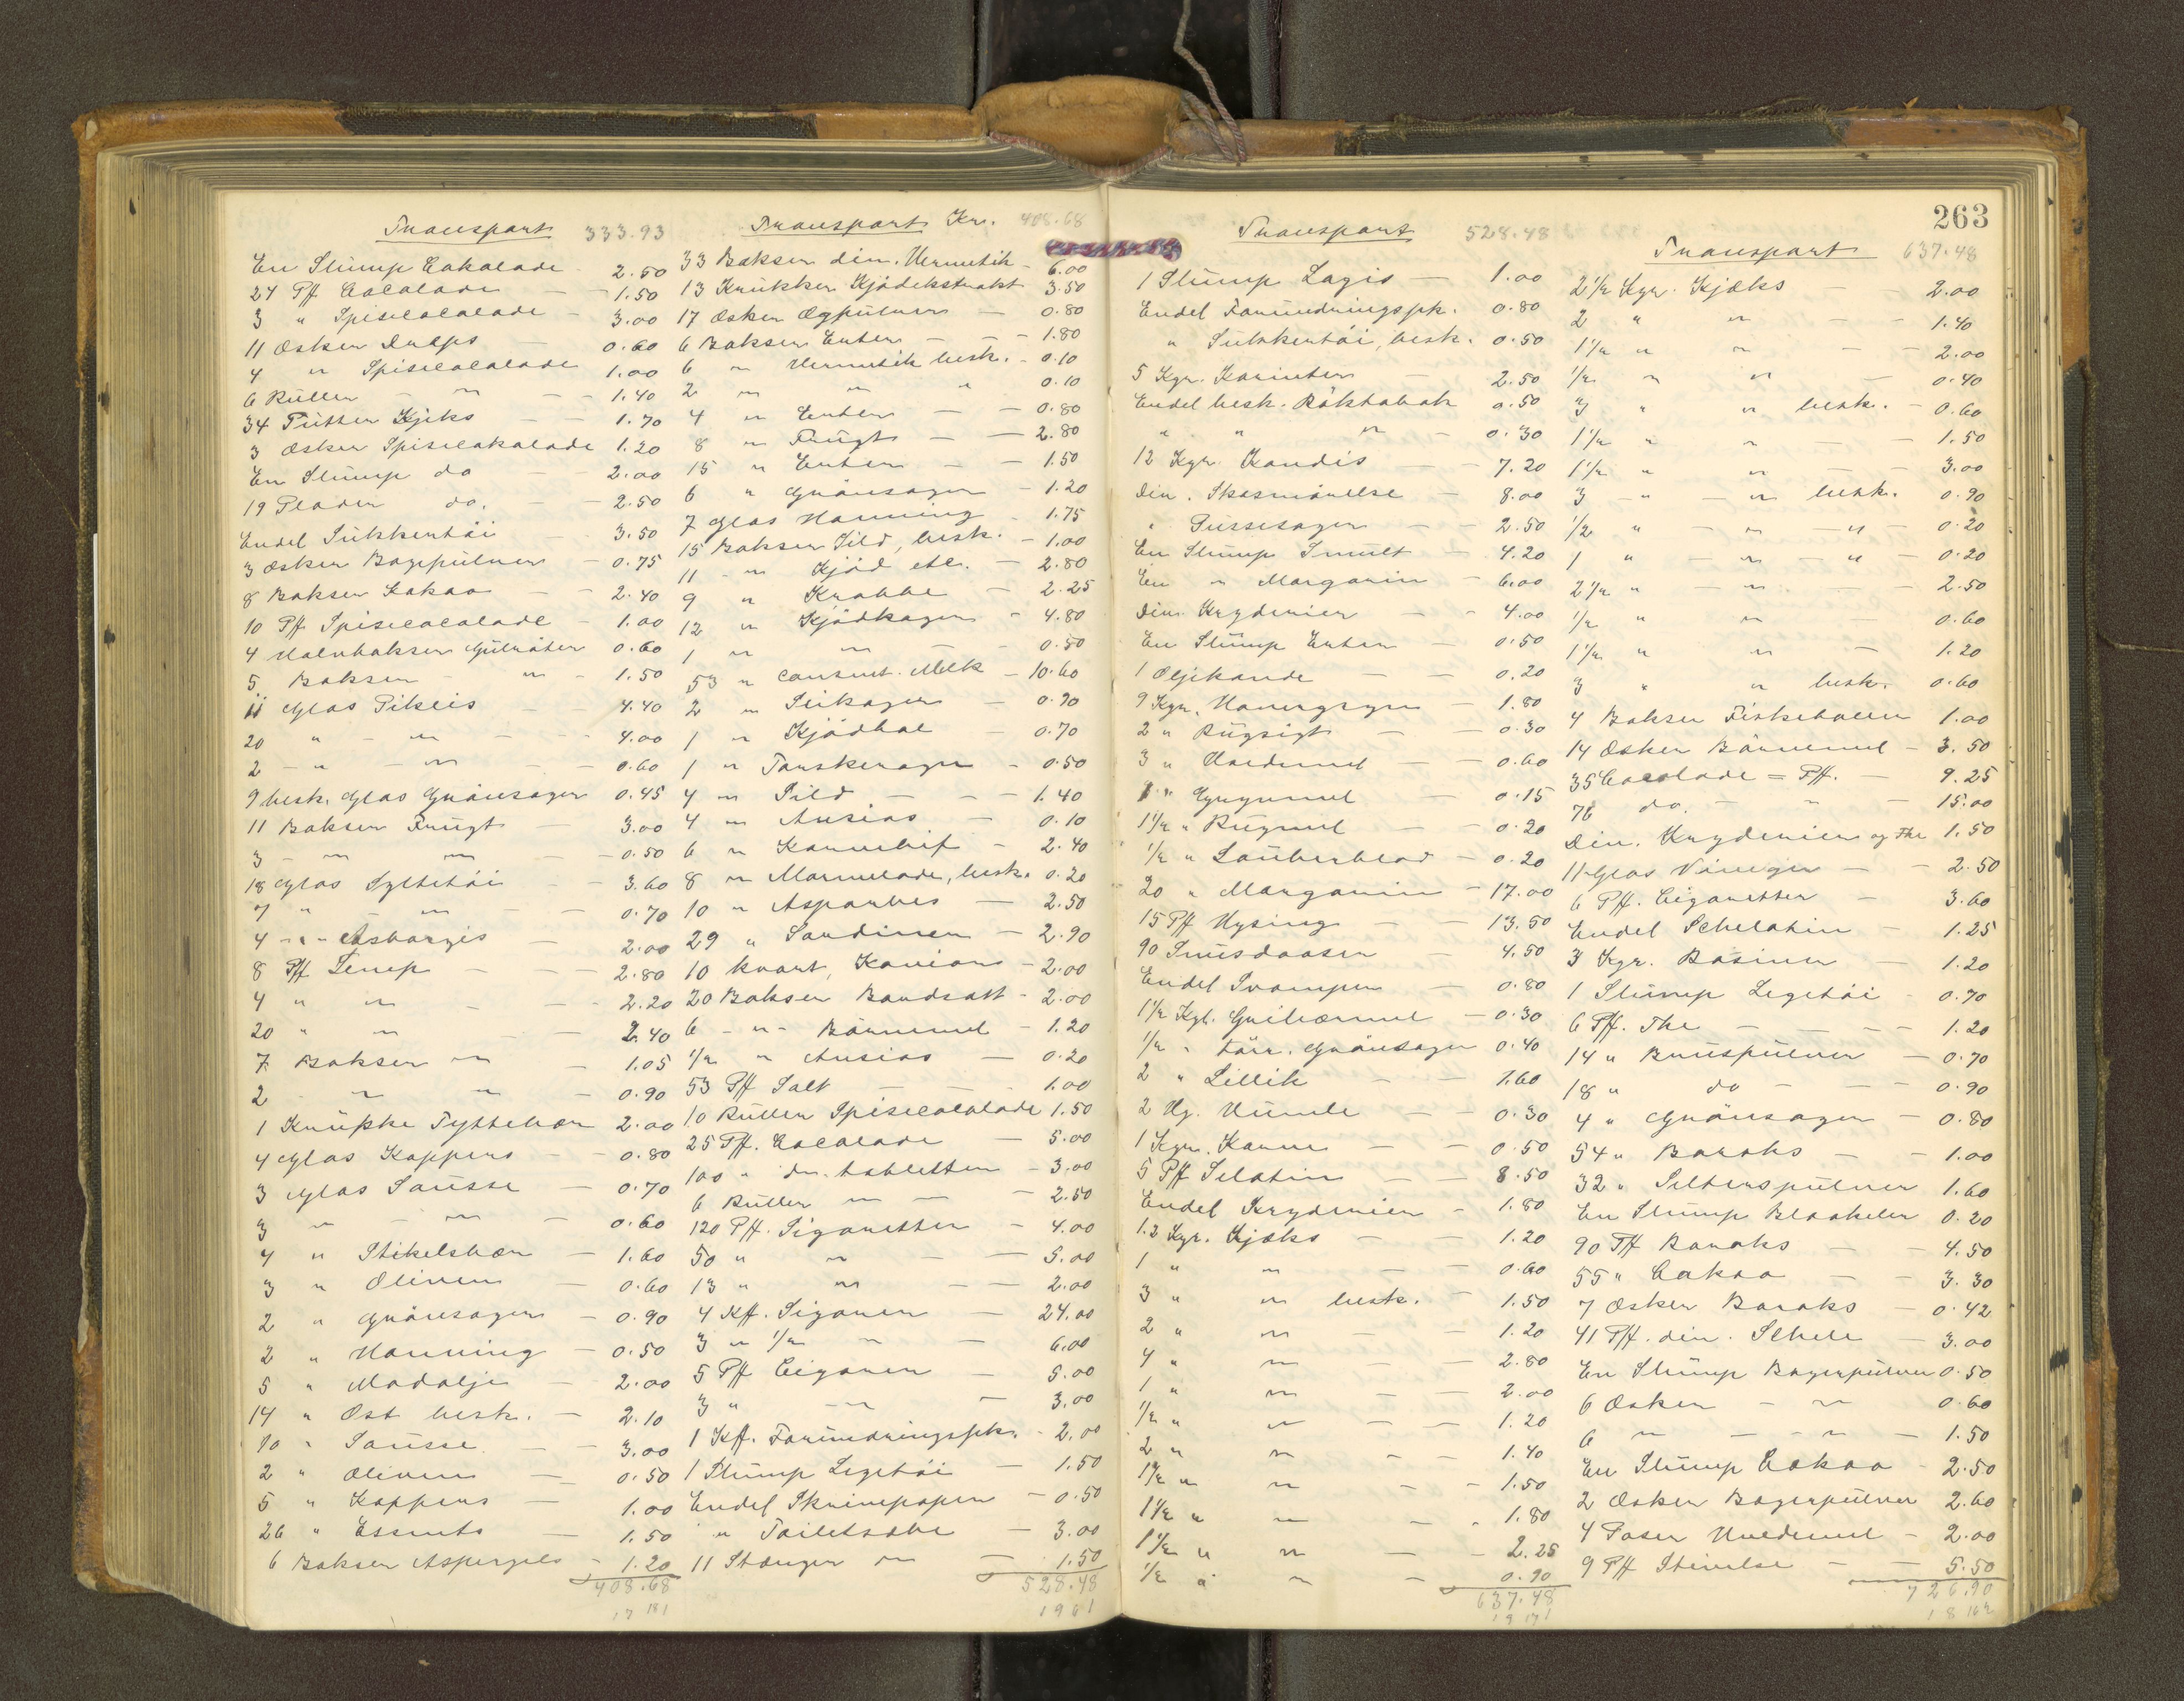 Transport 333.93
En Slump Cakalade 2.50
24 Pff Cacalade — 1.50
3 " Spisecacalade — 3.00
11 Æsker Drops — 0.60
4 " Spisecacalade 1.00
6 Ruller — " — 1.40
34 Tutter Kjeks — 1.70
3 Æsker Spisecakalade 1.20
En Slump do — 2.00
19 Plader do. — 2.50
Endel Sukkertöi 3.50
3 Æsker Bagepulver — 0.75
8 Bokser Kakao — 2.40
10 Pff Spisecacalade — 1.00
4 Halvbokser Gulröter 0.60
5 Bokser — " — 1.50
11 Glas Pikels — 4.40
20 " — " — 4.00
2 — " — " — 0.60
9 besk. Glas Grönsager 0.45
11 Bokser Frugt — 3.00
3 — " — " — 0.50
18 Glas Syltetöi — 3.60
7 " " — 0.70
4 — " — Asbarges — 2.00
8 Pff Senep — 2.80
4 " " — 2.20
20 " " — 2.40
7 Bokser " — 1.05
2 " " — 0.90
1 Krukke Tyttebær 2.00
4 Glas Kappers — 0.80
3 Glas Sausse — 0.70
3 " — " — 0.60
4 " Stikelsbær — 1.60
3 " Oliven — 0.60
2 " Grönsager — 0.90
2 " Honning — 0.50
5 " Madolje — 2.00
14 " Ost besk. — 2.10
10 " Sausse — 3.00
2 " Oliven — 0.50
5 " Kappers — 1.00
26 " Essents — 1.50
6 Bokser Aspergels — 1.20
408.68
17 181
Transport Kr. 408.68
33 Bokser div. Hermetik — 6.00
13 Krukker Kjödekstrakt 3.50
17 Æsker Ægpulver — 0.80
6 Bokser Erter — 1.80
6 " Hermetik besk. — 0.10
2 " " " 0.10
4 " Erter — 0.80
8 " Frugt — 2.80
15 " Erter — 1.50
6 " Grönsager — 1.20
7 Glas Honning — 1.75
15 Bokser Sild, besk. — 1.00
11 — " Kjöd etc. — 2.80
9 " Krabbe — 2.25
12 " Kjödkager — 4.80
1 " " — 0.50
53 " consent. Melk — 10.60
2 " Seikager — 0.90
1 " Kjödbol — 0.70
1 " Torskerogn — 0.50
4 " Sild — 1.40
4 " Ansios — 0.10
6 " Karnebif — 2.40
8 " Marmelade, besk. 0.20
10 " Asparges — 2.50
29 " Sardiner — 2.90
10 kvart, Kaviar — 2.00
20 Bokser Bordsalt — 2.00
6 — " — Börnemel — 1.20
1/2 " Ansios — 0.20
53 Pff Salt — 1.00
10 Ruller Spisecacalade 1.50
25 Pff. Cacalade — 5.00
100 " do. tabletter — 3.00
6 Ruller " — 2.50
120 Pff. Sigaretter — 4.00
50 " " — 5.00
13 " " — 2.00
4 Kff. Sigarer — 24.00
3 " 1/2 " — 6.00
5 Pff Cigarer 5.00
3 " — " — 3.00
1 Kff. Forundringspk. — 2.00
1 Slump Legetöi — 1.50
Endel Skrivepapir — 0.50
" Toiletsæbe — 3.00
11 Stænger " — 1.50
528.48
1961
Transport 528.48
1 Slump Lagis — 1.00
Endel Forundringspk. 0.80
" Sukkertöi, besk. 0.50
5 Kgr. Korinter — 2.50
Endel besk. Röktobak 0.50
" " " — 0.30
12 Kgr. Kandis — 7.20
Div. Skosmörelse — 8.00
" Pussesager — 2.50
En Slump Smult — 4.20
En " Margarin — 6.00
Div. Kryderier — 4.00
En Slump Erter — 0.50
1 Oljekande — 0.20
9 Kgr. Havregryn — 1.80
2 " Rugsigt — 0.30
3 " Hvedemel — 0.60
1 " Grynmel — 0.15
1 1/2 " Rugmel — 0.20
1/2 " Laurberblad — 0.20
20 " Margarin — 17.00
15 Pff Hyssing — 13.50
90 Snusdaaser — 4.50
Endel Svamper — 0.80
1 1/2 Kgr. — 0.30
1/2 " törr. Grönsager 0.40
2 " Lillik — 1.60
2 Hg. Humle — 0.30
1 Kgr. Karve — 0.50
5 Pff Selatin — 8.50
Endel Kryderier — 1.80
1.2 Kgr. Kjæks — 1.20
1 " " — 0.60
3 " " besk. — 1.50
2 " " — 1.20
4 " " — 2.80
1 " " — 2.00
1/2 " " — 1.20
2 " " — 1.40
1 1/2 " " — 1.50
1 1/2 " " — 1.80
1 1/2 " " — 2.25
1/2 " " — 0.90
637.48
19 171
263
Transport 637.48
2 1/2 Kgr. Kjæks — 2.00
2 " " — 1.40
1 1/2 " " — 2.00
1/2 " " — 0.40
3 " " besk. — 0.60
1 1/2 " " — 1.50
1 1/2 " " — 3.00
3 — " — " besk. 0.90
1/2 " — " — " 0.20
1 " — " — " 0.20
2 1/2 " — " — 2.50
1/2 " " — 0.60
1 1/2 " " — 1.20
3 " " besk. 0.60
4 Bokser Fiskeboller 1.00
14 Æsker Börnemel — 3.50
35 Cacolade = Pff. — 9.25
76 do. — " — 15.00
Div. Kryderier og The 1.50
11 Glas — 2.50
6 Pff. Cigaretter — 3.60
Endel Schelatin — 1.25
3 Kgr. Rosiner — 1.20
1 Slump Legetöi — 0.70
6 Pff. The — 1.20
14 " Bruspulver — 0.70
18 " do — 0.90
4 " Grönsager — 0.80
54 " Boraks — 1.00
32 " Selterspulver 1.60
En Slump Blaakeler 0.20
90 Pff Boraks — 4.50
55 " Cakao — 3.30
7 Æsker Boraks — 0.42
41 Pff. div. Schele — 3.00
En Slump Bagerpulver 0.50
6 Æsker — " 0.60
6 " — " — 1.50
En Slump Cakao — 2.50
2 Æsker Bagerpulver 2.60
4 Poser Hvedemel — 2.00
9 Pff Stivelse — 5.50
726.90
18 162